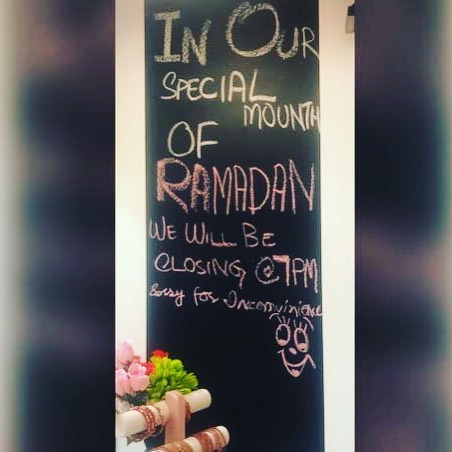 IN OUR
SPECIAL
MOUNTH
OF
RAMADAN
WE WILL BE
CLOSING @7PM
Sorry for Inconvinience